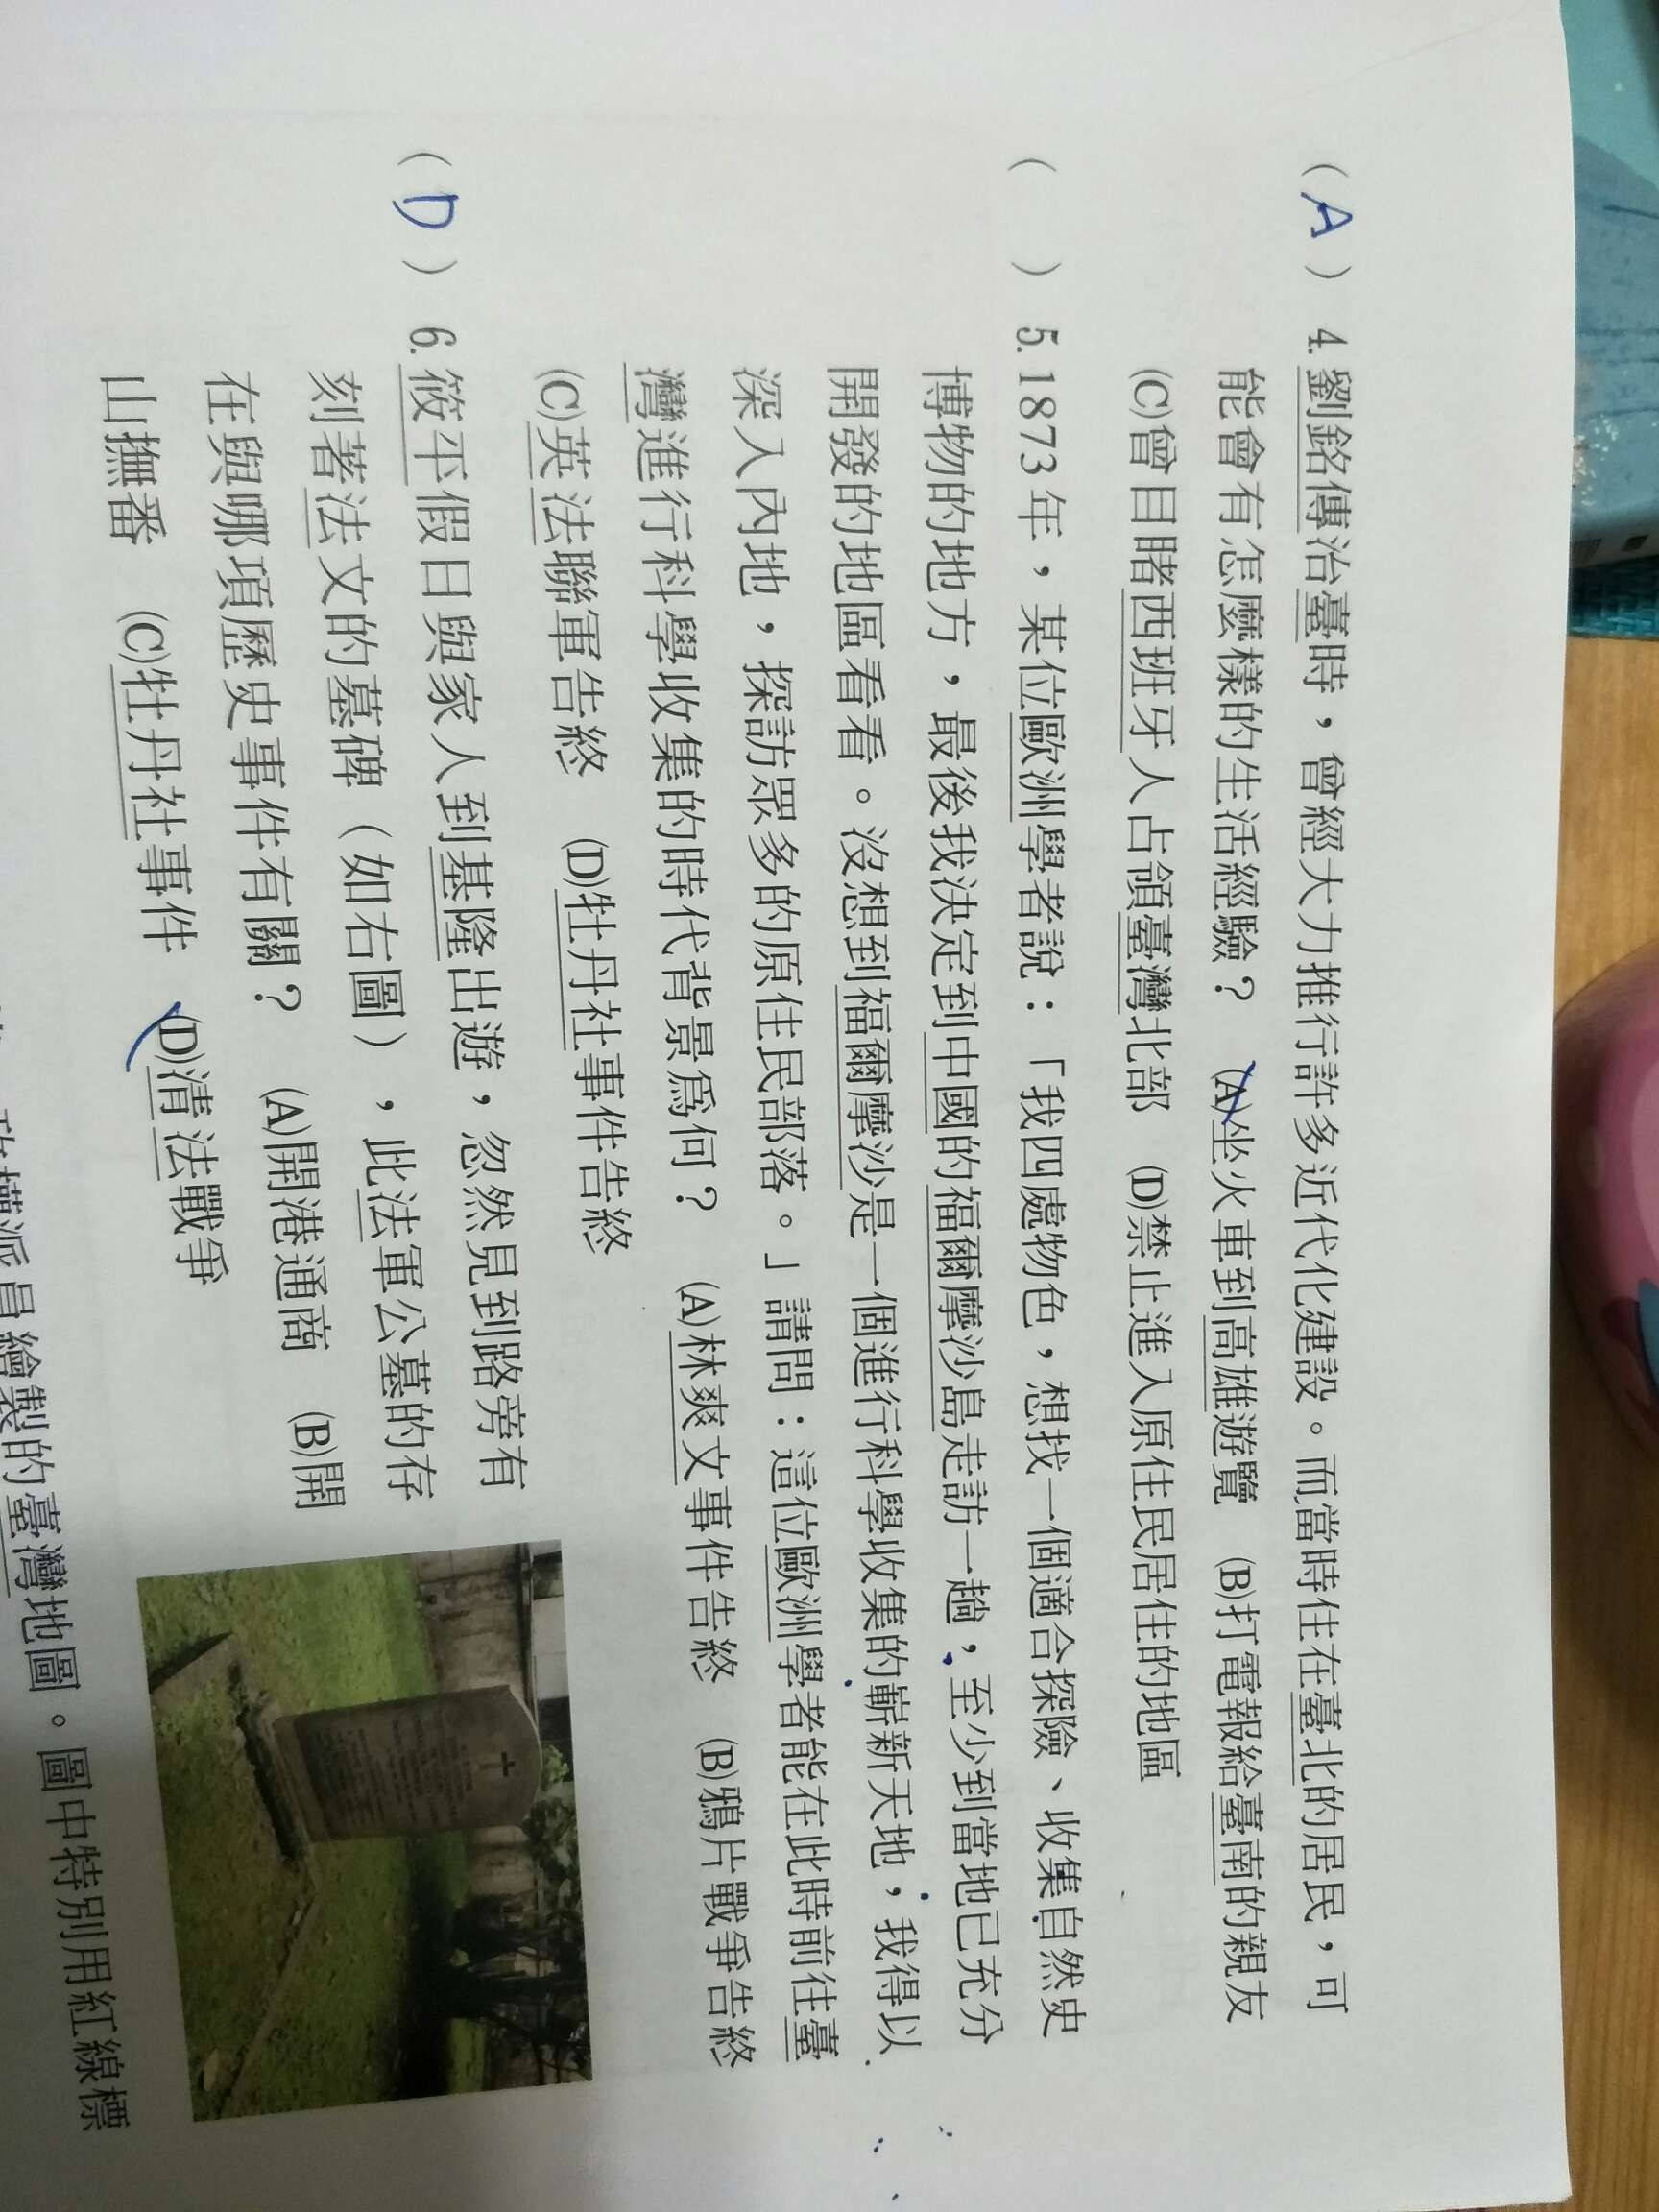 （A）4.劉銘傳治臺時，曾經大力推行許多近代化建設。而當時住在臺北的居民，可
能會有怎麼樣的生活經驗？　(A)坐火車到高雄遊覽　(B)打電報給臺南的親友
(C)曾目睹西班牙人占領臺灣北部　(D)禁止進入原住民居住的地區
（　）5.1873年，某位歐洲學者說：「我四處物色，想找一個適合探險、收集自然史
博物的地方，最後我決定到中國的福爾摩沙島走訪一趟，至少到當地已充分
開發的地區看看。沒想到福爾摩沙是一個進行科學收集的嶄新天地，我得以
深入內地，探訪眾多的原住民部落。」請問：這位歐洲學者能在此時前往臺
灣進行科學收集的時代背景為何？　(A)林爽文事件告終　(B)鴉片戰爭告終
(C)英法聯軍告終　(D)牡丹社事件告終
（D）6.筱平假日與家人到基隆出遊，忽然見到路旁有
刻著法文的墓碑（如右圖），此法軍公墓的存
在與哪項歷史事件有關？　(A)開港通商　(B)開
山撫番　(C)牡丹社事件　(D)清法戰爭
政權派員繪製的臺灣地圖。圖中特別用紅線標